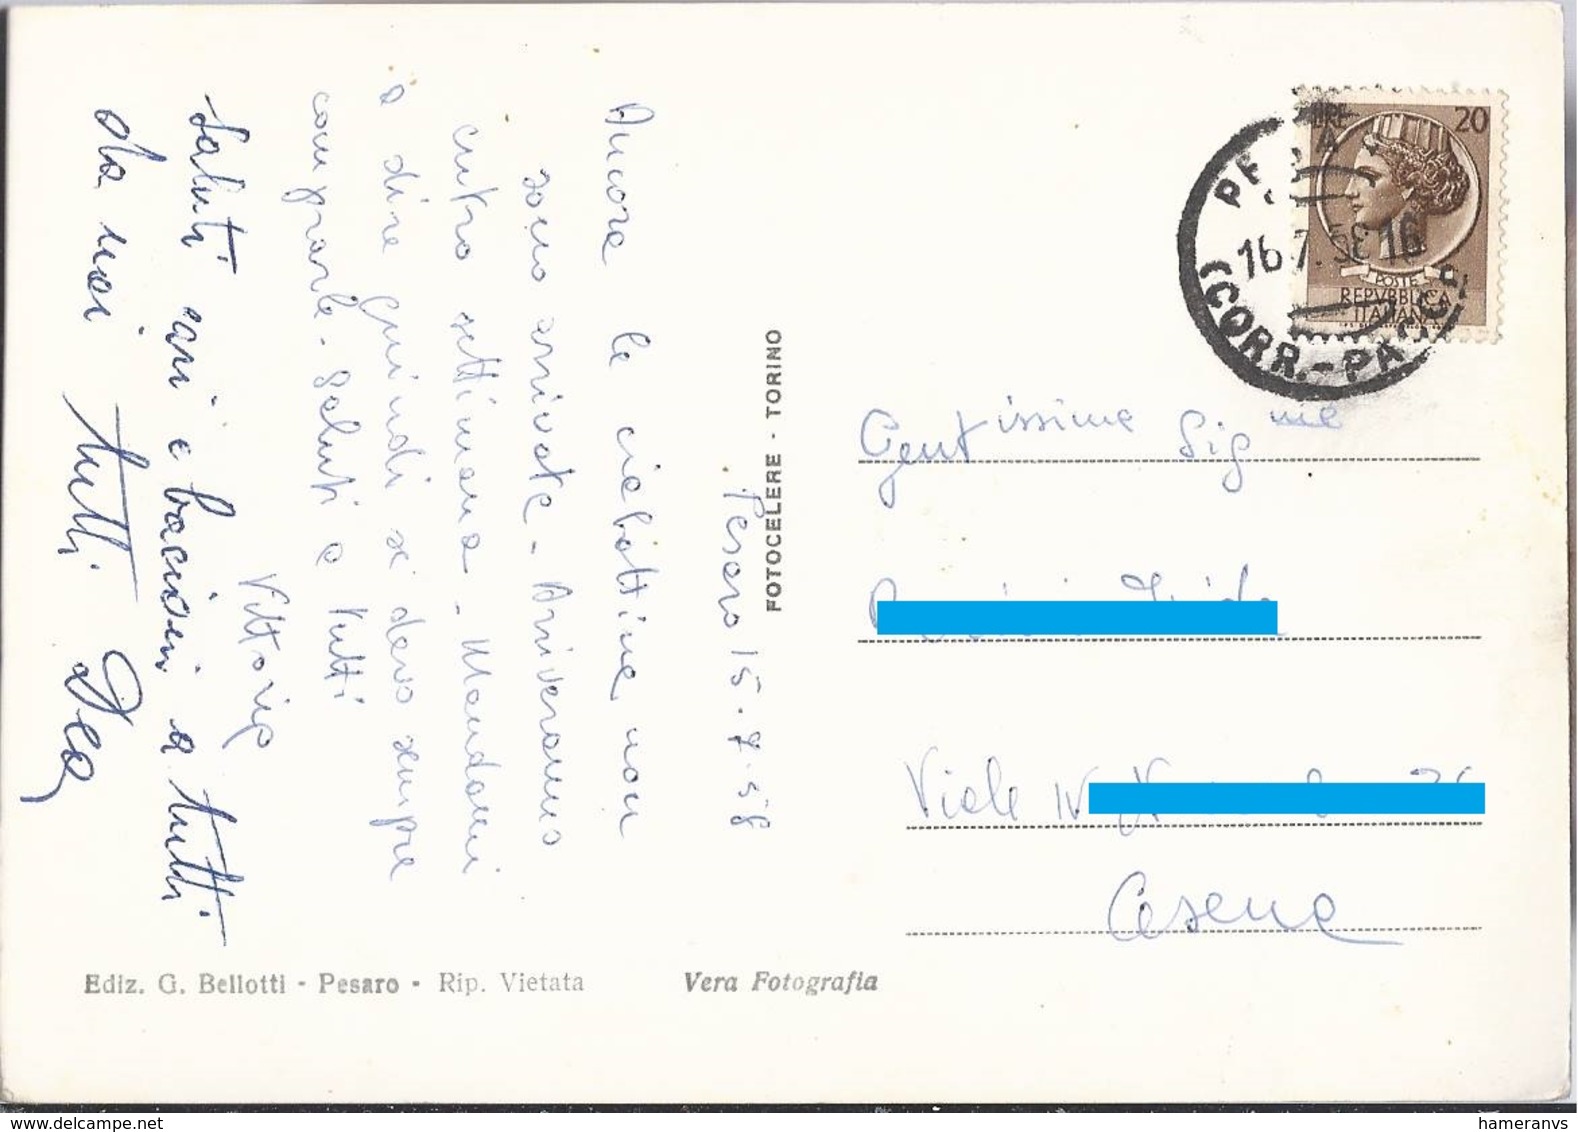 Pesaro 15.7.58
Ancora le ciabattine non
sono arrivate - Arriveranno
entro settimana - Mandami
a dire quindi se devo sempre
comprarle - Saluti a tutti
Vittoria
Saluti cari e bacioni a tutti
da noi tutti Dea
FOTOCELERE - TORINO
LIRE 20
POSTE
REPVBBLICA
ITALIANA
16.7.58 16
(CORR.-PACCHI)
Gentissima Sig.na
Viale IV
Cesena
Ediz. G. Bellotti - Pesaro - Rip. Vietata
Vera Fotografia
hameranvs